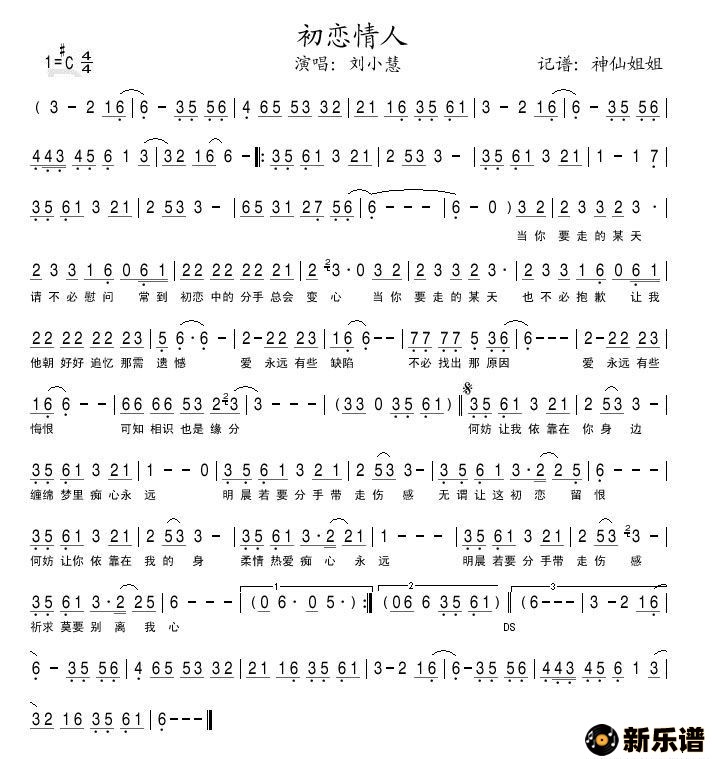 初恋情人
1=#C 4/4 演唱：刘小慧 记谱：神仙姐姐
( 3 - 2 16 | 6 - 35 56 | 4 65 53 32 | 21 16 35 61 | 3 - 2 16 | 6 - 35 56 |
443 45 6 1 3 | 32 16 6 - ‖: 35 61 3 21 | 2 53 3 - | 35 61 3 21 | 1 - 1 7 |
35 61 3 21 | 2 53 3 - | 65 31 27 56 | 6 - - - | 6 - 0 ) 3 2 | 2 3 3 2 3 ·
当你 要走的某天
2 3 3 1 6 0 6 1 | 22 22 22 21 | 2 2 3 · 0 3 2 | 2 3 3 2 3 · | 2 3 3 1 6 0 6 1 |
请不必慰问 常到 初恋中的分手总会 变心 当你 要走的某天 也不必抱歉 让我
22 22 22 23 | 5 6 · 6 - | 2 - 22 23 | 16 6 - - | 77 77 5 36 | 6 - - - | 2 - 22 23 |
他朝好好追忆那需 遗憾 爱 永远有些 缺陷 不必找出那 原因 爱 永远有些
16 6 - - | 66 66 53 2 2 3 | 3 - - - | (33 0 35 61) ‖ 35 61 3 21 | 2 53 3 - |
悔恨 可知相识也是缘分 何妨让我依靠在 你身 边
35 61 3 21 | 1 - - 0 | 35 61 3 21 | 2 53 3 - | 35 61 3 · 2 2 2 5 | 6 - - - |
缠绵梦里痴心永 远 明晨若要分手带 走伤 感 无谓让这初 恋 留 恨
35 61 3 21 | 2 53 3 - | 35 61 3 · 2 21 | 1 - - - | 35 61 3 21 | 2 53 2 3 - |
何妨让你依靠在 我的 身 柔情热爱痴 心 永 远 明晨若要分手带 走伤 感
1 2 3
35 61 3 · 2 25 | 6 - - - | (0 6 · 0 5 · ) :‖ (06 6 35 61) | (6 - - - | 3 - 2 16 |
祈求莫要别 离 我 心 DS
6 - 35 56 | 4 65 53 32 | 21 16 35 61 | 3 - 2 16 | 6 - 35 56 | 443 45 6 1 3 |
32 16 35 61 | 6 - - - ‖
新乐谱